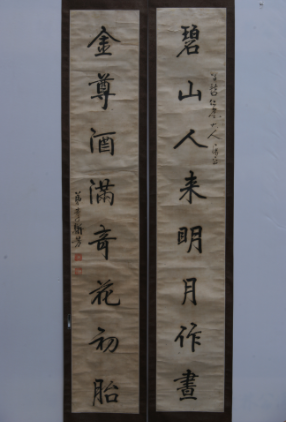 碧山人来明月作畫
金尊酒滿奇花初胎